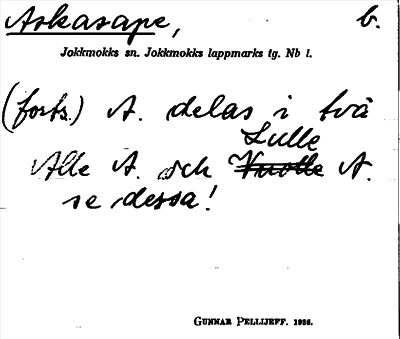 Askasape, b.
Jokkmokks sn. Jokkmokks lappmarks tg. Nb l.
(forts.) A. delas i två
Lulle
Alle A. och Vuolle A.
se dessa!
GUNNAR PELLIJEFF. 1936.